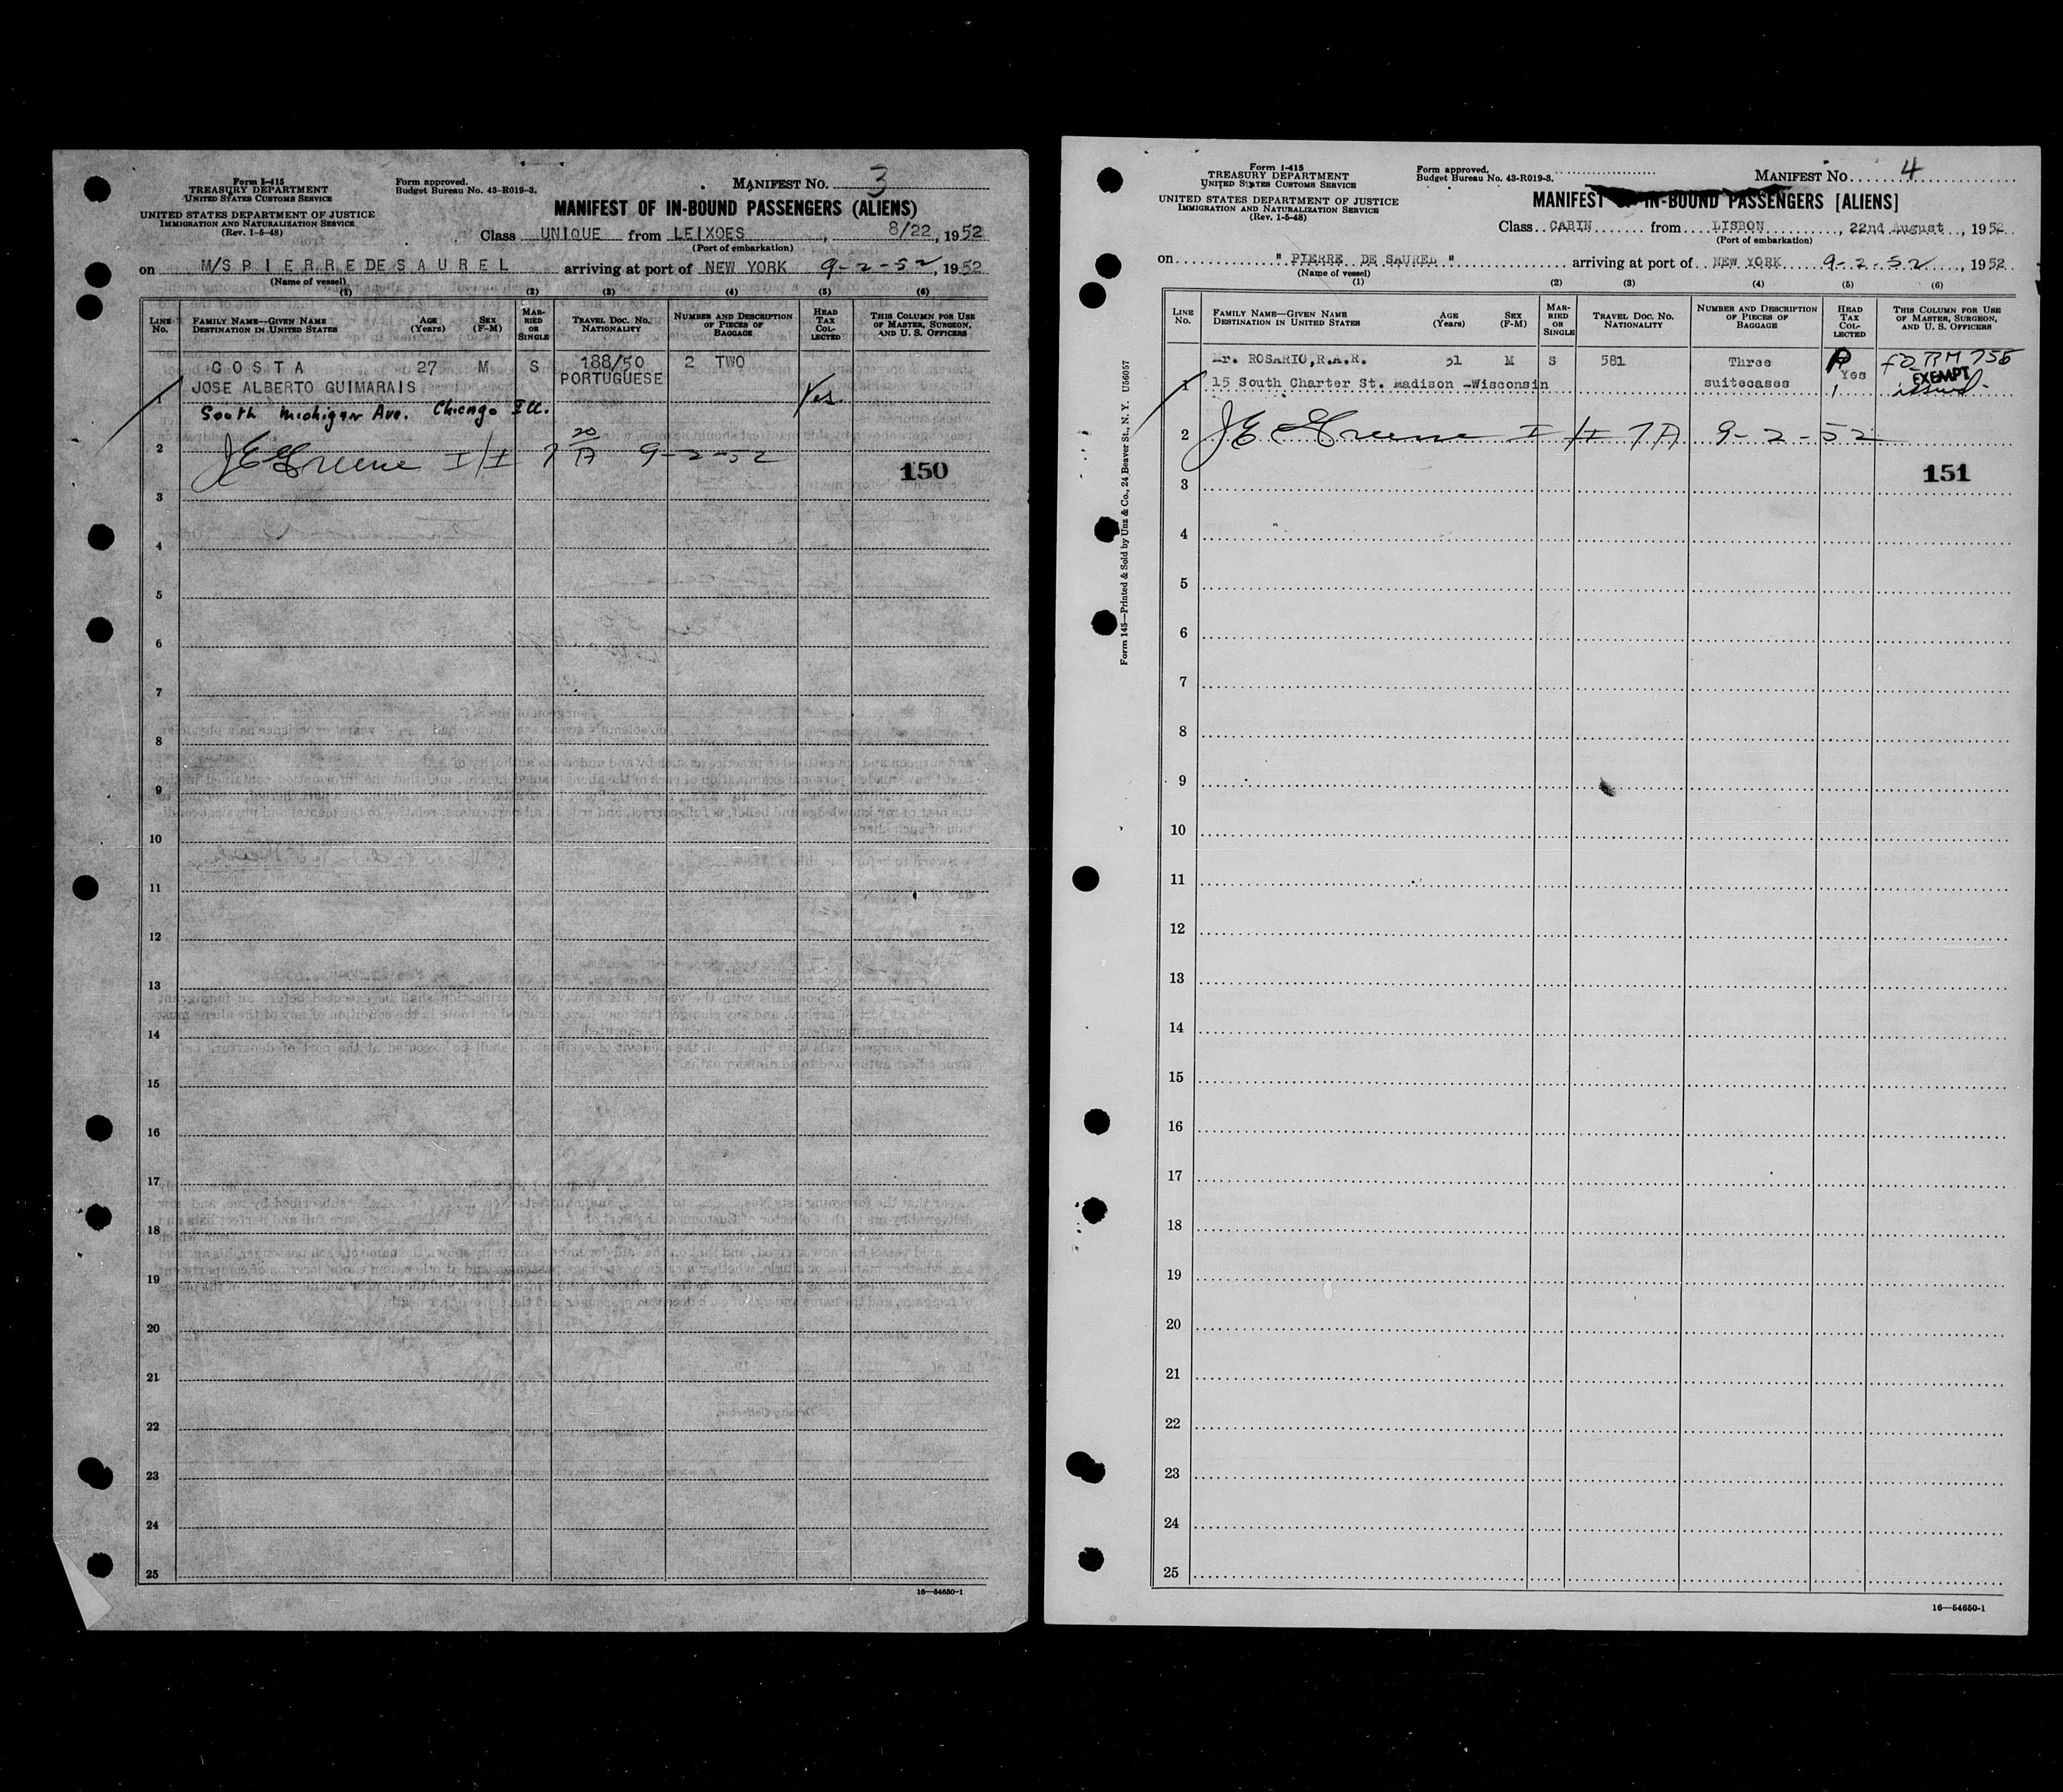 Form I-415
TREASURY DEPARTMENT
UNITED STATES CUSTOMS SERVICE
UNITED STATES DEPARTMENT OF JUSTICE
IMMIGRATION AND NATURALIZATION SERVICE
(Rev. 1-5-48)
Form approved.
Budget Bureau No. 43-R019-3.
MANIFEST NO. 3
MANIFEST OF IN-BOUND PASSENGERS (ALIENS)
Class UNIQUE from LEIXOES, 8/22, 1952
(Port of embarkation)
on M/S P I E R R E DE S A U R E L arriving at port of NEW YORK 9-2-52, 1952
(Name of vessel)
(1) (2) (3) (4) (5) (6)
LINE No.
FAMILY NAME—GIVEN NAME
DESTINATION IN UNITED STATES
AGE (Years)
SEX (F-M)
MARRIED OR SINGLE
TRAVEL DOC. NO.
NATIONALITY
NUMBER AND DESCRIPTION OF PIECES OF BAGGAGE
HEAD TAX COLLECTED
THIS COLUMN FOR USE OF MASTER, SURGEON, AND U. S. OFFICERS
C O S T A 27 M S 188/50 2 TWO
JOSE ALBERTO GUIMARAIS PORTUGUESE
1 South Michigan Ave. Chicago Ill. Yes
2 J E Greene I/I 7 20 A 9-2-52
150
3
4
5
6
7
8
9
10
11
12
13
14
15
16
17
18
19
20
21
22
23
24
25
16—54650-1
Form I-415
TREASURY DEPARTMENT
UNITED STATES CUSTOMS SERVICE
UNITED STATES DEPARTMENT OF JUSTICE
IMMIGRATION AND NATURALIZATION SERVICE
(Rev. 1-5-48)
Form approved.
Budget Bureau No. 43-R019-3.
MANIFEST NO. 4
MANIFEST OF IN-BOUND PASSENGERS [ALIENS]
Class CABIN from LISBON, 22nd August, 1952
(Port of embarkation)
on " PIERRE DE SAUREL " arriving at port of NEW YORK 9-2-52, 1952
(Name of vessel)
(1) (2) (3) (4) (5) (6)
LINE No.
FAMILY NAME—GIVEN NAME
DESTINATION IN UNITED STATES
AGE (Years)
SEX (F-M)
MARRIED OR SINGLE
TRAVEL DOC. NO.
NATIONALITY
NUMBER AND DESCRIPTION OF PIECES OF BAGGAGE
HEAD TAX COLLECTED
THIS COLUMN FOR USE OF MASTER, SURGEON, AND U. S. OFFICERS
Mr. ROSARIO,R.A.R. 31 M S 581 Three Yes
1 15 South Charter St. Madison -Wisconsin suitecases EXEMPT issued
2 J E Greene I/I 7 A 9-2-52
151
3
4
5
6
7
8
9
10
11
12
13
14
15
16
17
18
19
20
21
22
23
24
25
Form 145—Printed & Sold by Unz & Co., 24 Beaver St., N. Y. U56057
16—54650-1